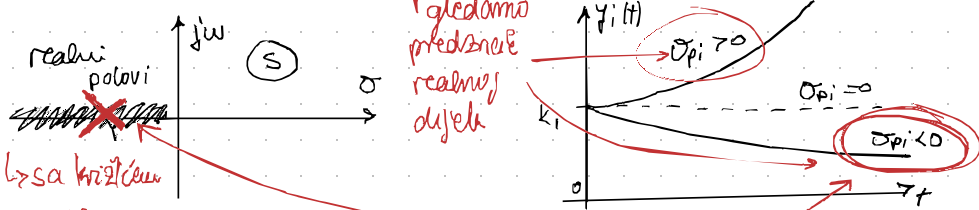 jω
S
realni
polovi
σ
↳ sa križićem
gledamo
predznak
realnog
dijela
yᵢ(t)
σpi > 0
σpi = 0
K₁
σpi < 0
0
t